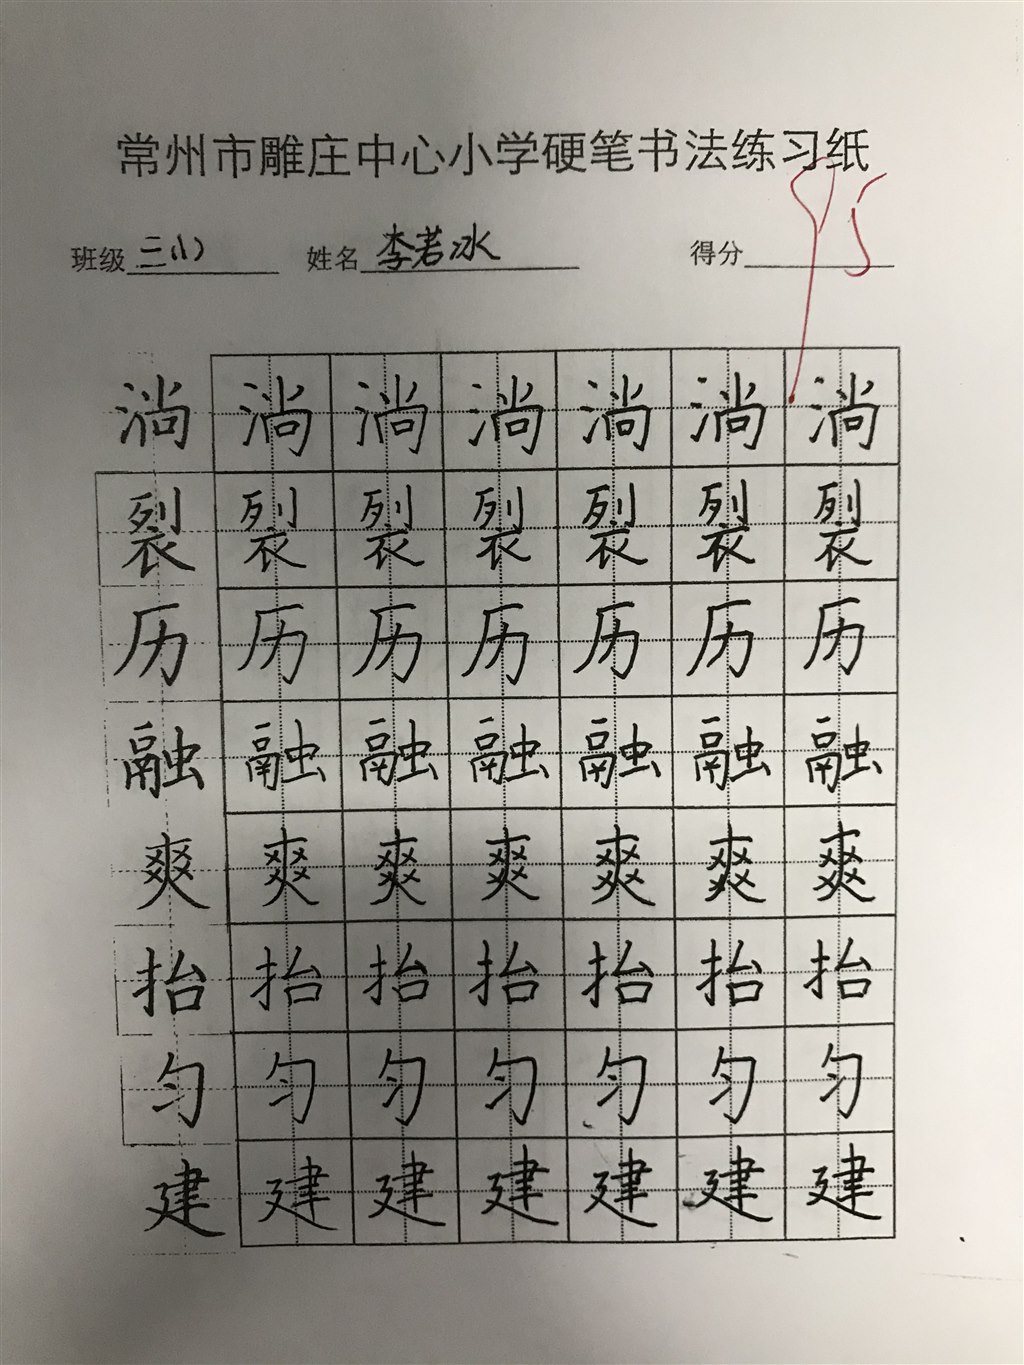 常州市雕庄中心小学硬笔书法练习纸
班级 三(1) 姓名 李若冰 得分 95
淌 淌 淌 淌 淌 淌 淌
裂 裂 裂 裂 裂 裂 裂
历 历 历 历 历 历 历
融 融 融 融 融 融 融
爽 爽 爽 爽 爽 爽 爽
抬 抬 抬 抬 抬 抬 抬
匀 匀 匀 匀 匀 匀 匀
建 建 建 建 建 建 建